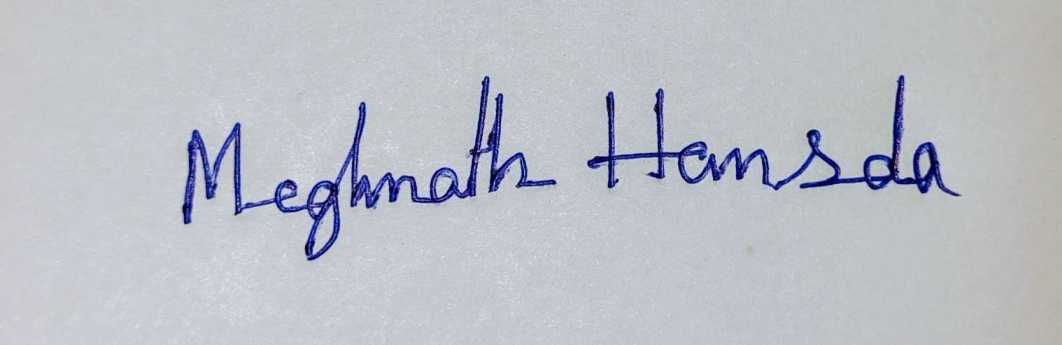 Meghnath Hansda